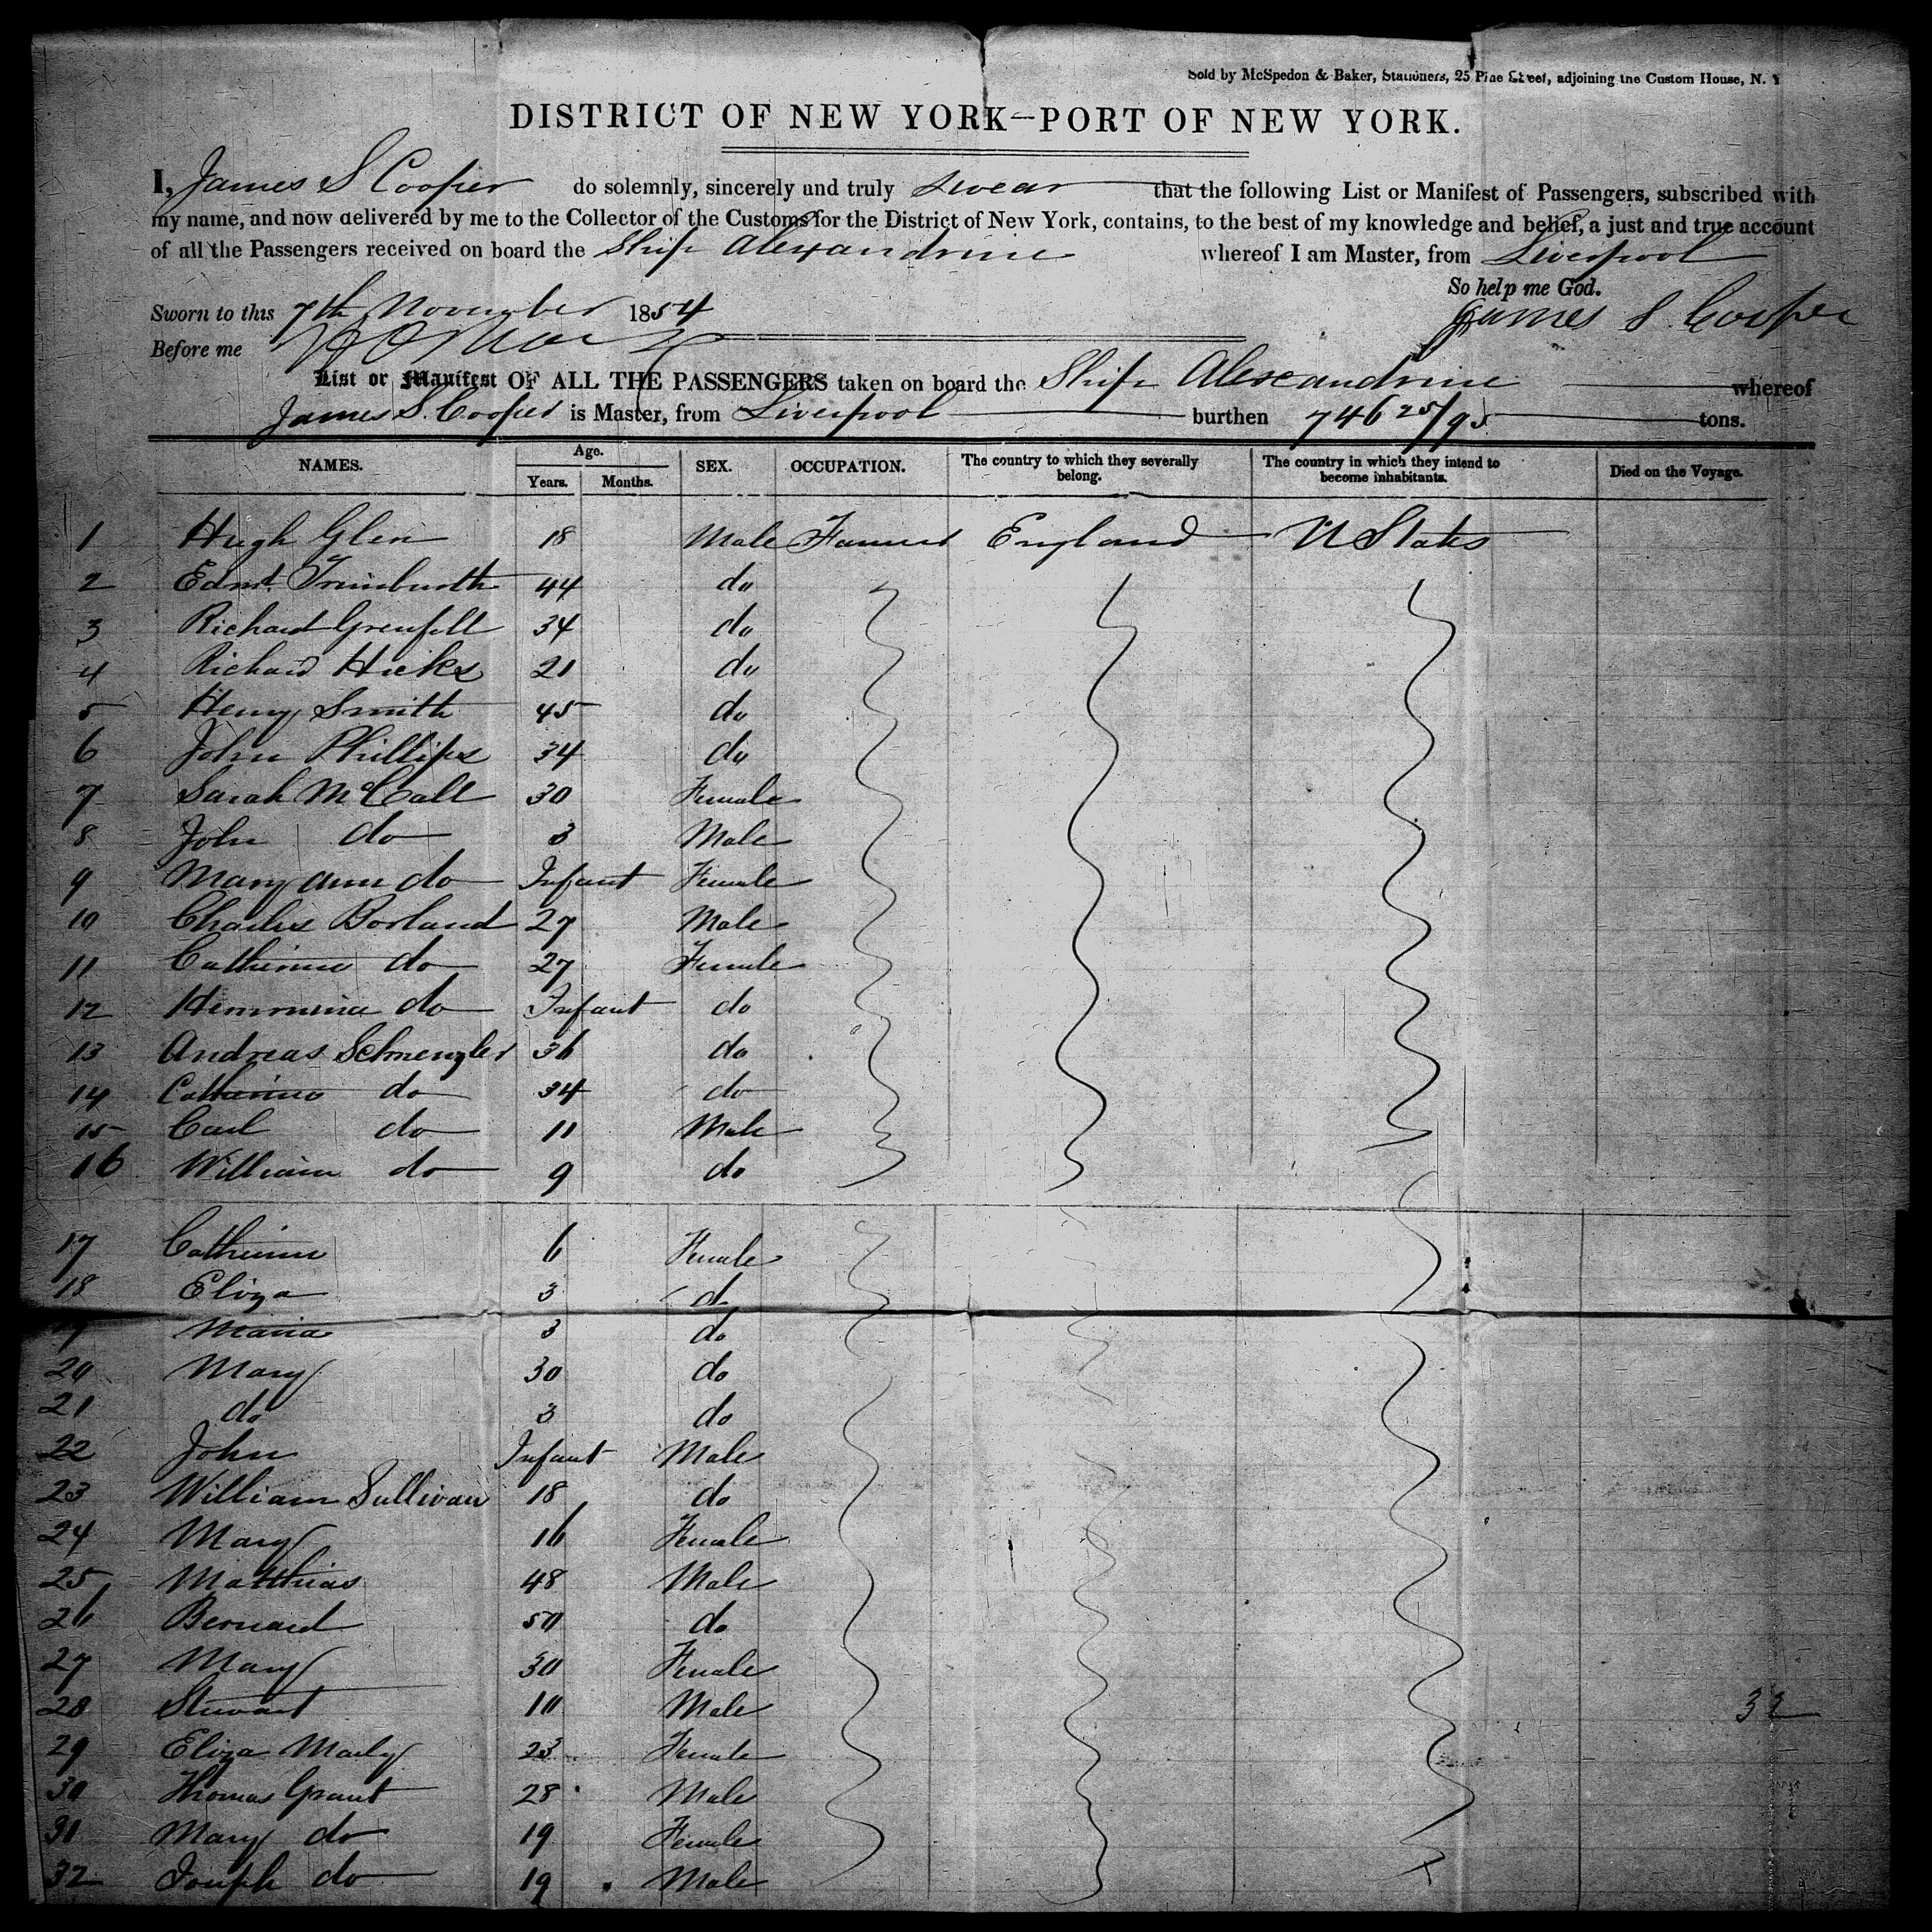 Sold by McSpedon & Baker, Stationers, 25 Pine Street, adjoining the Custom House, N. Y
DISTRICT OF NEW YORK—PORT OF NEW YORK.
I, James S Cooper do solemnly, sincerely and truly Swear that the following List or Manifest of Passengers, subscribed with
my name, and now delivered by me to the Collector of the Customs for the District of New York, contains, to the best of my knowledge and belief, a just and true account
of all the Passengers received on board the Ship Alexandrine whereof I am Master, from Liverpool
So help me God.
Sworn to this 7th November 1854 James S Cooper
Before me
List or Manifest OF ALL THE PASSENGERS taken on board the Ship Alexandrine whereof
James S. Cooper is Master, from Liverpool burthen 746 25/95 tons.
NAMES. Age. Years. Months. SEX. OCCUPATION. The country to which they severally belong. The country in which they intend to become inhabitants. Died on the Voyage.
1 Hugh Glen 18 Male Farmer England U States
2 Edmd. 44 do
3 Richard Grenfell 34 do
4 Richard Hicks 21 do
5 Henry Smith 45 do
6 John Phillips 34 do
7 Sarah McCall 30 Female
8 John do 3 Male
9 Mary Ann do Infant Female
10 Charles Borland 27 Male
11 Catherine do 27 Female
12 do Infant do
13 Andreas Schmengler 36 do
14 Catherine do 34 do
15 Carl do 11 Male
16 William do 9 do
17 Catherine 6 Female
18 Eliza 3 do
19 Maria 3 do
20 Mary 30 do
21 do 3 do
22 John Infant Male
23 William Sullivan 18 do
24 Mary 16 Female
25 Matthias 48 Male
26 Bernard 50 do
27 Mary 30 Female
28 Stewart 10 Male 32
29 Eliza 23 Female
30 Thomas Grant 28 Male
31 Mary do 19 Female
32 Joseph do 19 Male